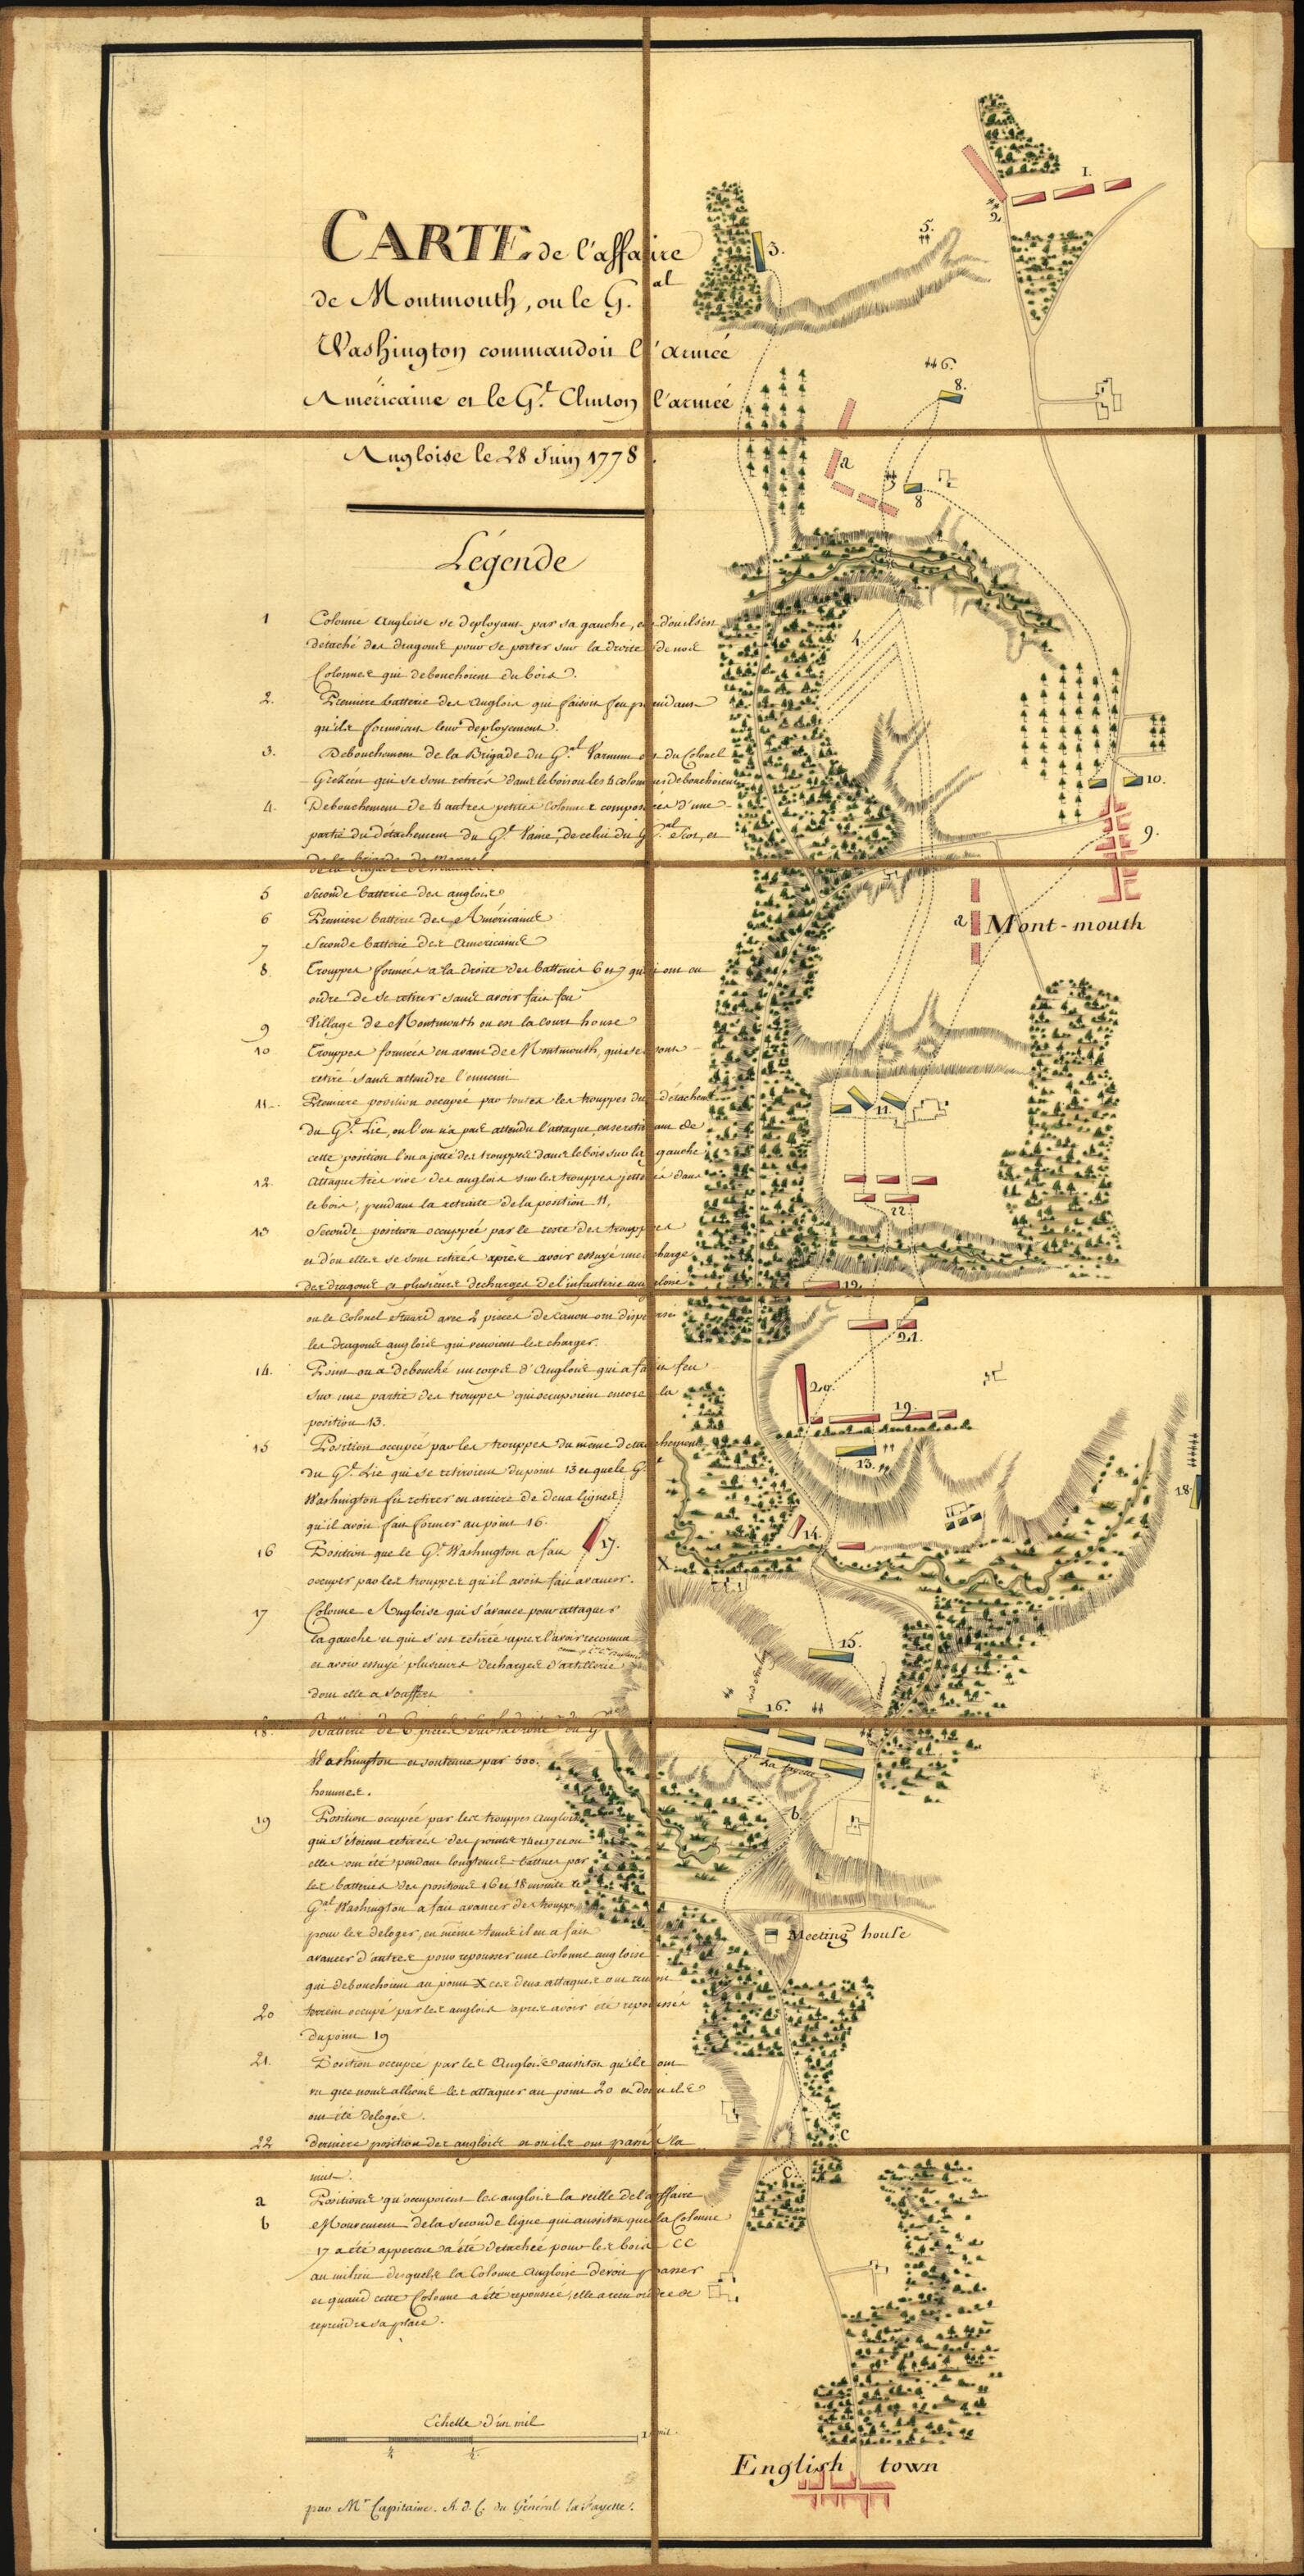 CARTE de l'affaire
de Montmouth, ou le G.al
Washington commandoit l'armée
Américaine et le G.l Clinton l'armée
Angloise le 28 Juin 1778.
Légende
1 Colonne Angloise se deployant par sa gauche, et d'ou ils ont
detaché des dragons pour se porter sur la droite de nos
Colonnes qui debouchoient du bois.
2. Premiere batterie des Anglois qui faisoit feu pendant
qu'ils formoient leur deployement.
3. Debouchement de la Brigade du G.al Varnum et du Colonel
qui se sont retirés dans le bois ou les 4 colonnes debouchoient
4. Debouchement de 4 autres petites Colonnes composées d'une
partie du détachement du G.l Vaine, de celui du G.al Scot, et
de la brigade de
5 Seconde batterie des anglois
6 Premiere batterie des Américains
7 Seconde batterie des Américains
8 Trouppes formées a la droite des batteries 6 et 7 qui ont eu
ordre de se retirer sans avoir fait feu
9 Village de Montmouth ou est la Court house
10 Trouppes formées en avant de Montmouth, qui se sont
retiré sans attendre l'ennemi
11. Premiere position occupée par toutes les trouppes du détachemt
du G.l Lie, ou l'on n'a pas attendu l'attaque, en se retirant de
cette position l'on a jetté des trouppes dans le bois sur la gauche
12. Attaque très vive des anglois sur les trouppes jettées dans
le bois, pendant la retraite de la position 11.
13 Seconde position occuppée par le reste des trouppes
et d'ou elles se sont retirés après avoir essuyé une charge
des dragons et plusieurs decharges de l'infanterie angloise
ou le Colonel Stuard avec 2 pieces de Canon ont dispersé
les dragons anglois qui venoient les charger.
14. Point ou a debouché un corps d'Anglois qui a fait feu
sur une partie des trouppes qui occupoient encore la
position 13.
15 Position occupée par les trouppes du même detachement
du G.l Lie qui se retiroient du point 13 et que le G.l
Washington fit retirer en arriere de deux lignes
qu'il avoit fait former au point 16.
16 Position que le G.l Washington a fait
occuper par les trouppes qu'il avoit fait avancer.
17 Colonne Angloise qui s'avance pour attaquer
la gauche et qui s'est retirée après l'avoir reconnue
et avoir essuyé plusieurs decharges d'artillerie
dont elle a souffert
18. Batterie de 6 pieces sur la droite du G.
Washington et soutenue par 500.
hommes.
19 Position occupée par les trouppes Angloises
qui s'étoient retirées des points 14 et 17 et ou
elles ont été pendant longtems battues par
les batteries des positions 16 et 18 ensuite le
G.al Washington a fait avancer des trouppes
pour les deloger, en même tems il en a fait
avancer d'autres pour repousser une Colonne angloise
qui debouchoient au point X ces deux attaques ont
20 terrein occupé par les anglois après avoir été repoussés
du point 19
21. Position occupée par les Anglois aussitôt qu'ils ont
vu que nous allions les attaquer au point 20 et d'ou ils
ont été delogés.
22 derniere position des anglois et ou ils ont passé la
nuit.
a Positions qu'occupoient les anglois la veille de l'affaire
b Mouvement de la seconde ligne qui aussitôt que la Colonne
17 a été apperçue a été detachée pour les bois CC
au milieu desquels la Colonne Angloise devoit passer
et quand cette Colonne a été repoussée, elle a reçu ordre de
reprendre sa place.
Echelle d'un mil
1/4
1/2
1 mil.
par M.r Capitaine. A. D. C. du Général la Fayette.
1.
2.
3.
5.
6.
8.
a
7
8
4.
10.
9.
a
Mont-mouth
11.
22.
12.
21.
20.
19.
13.
18.
14.
17.
X
15.
16.
La fayette
b.
Meeting house
C
C.
English town